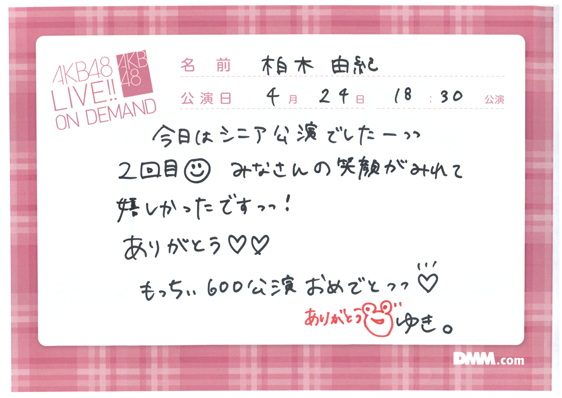 AKB48
LIVE!!
ON DEMAND
AKB
48
名前 柏木 由紀
公演日 4月 24日 18:30 公演
今日はシニア公演でしたーっっ
2回目 みなさんの笑顔がみれて
嬉しかったですっっ!
ありがとう♡♡
もっちぃ 600公演 おめでとっっ♡
ありがとう ゆき。
DMM.com